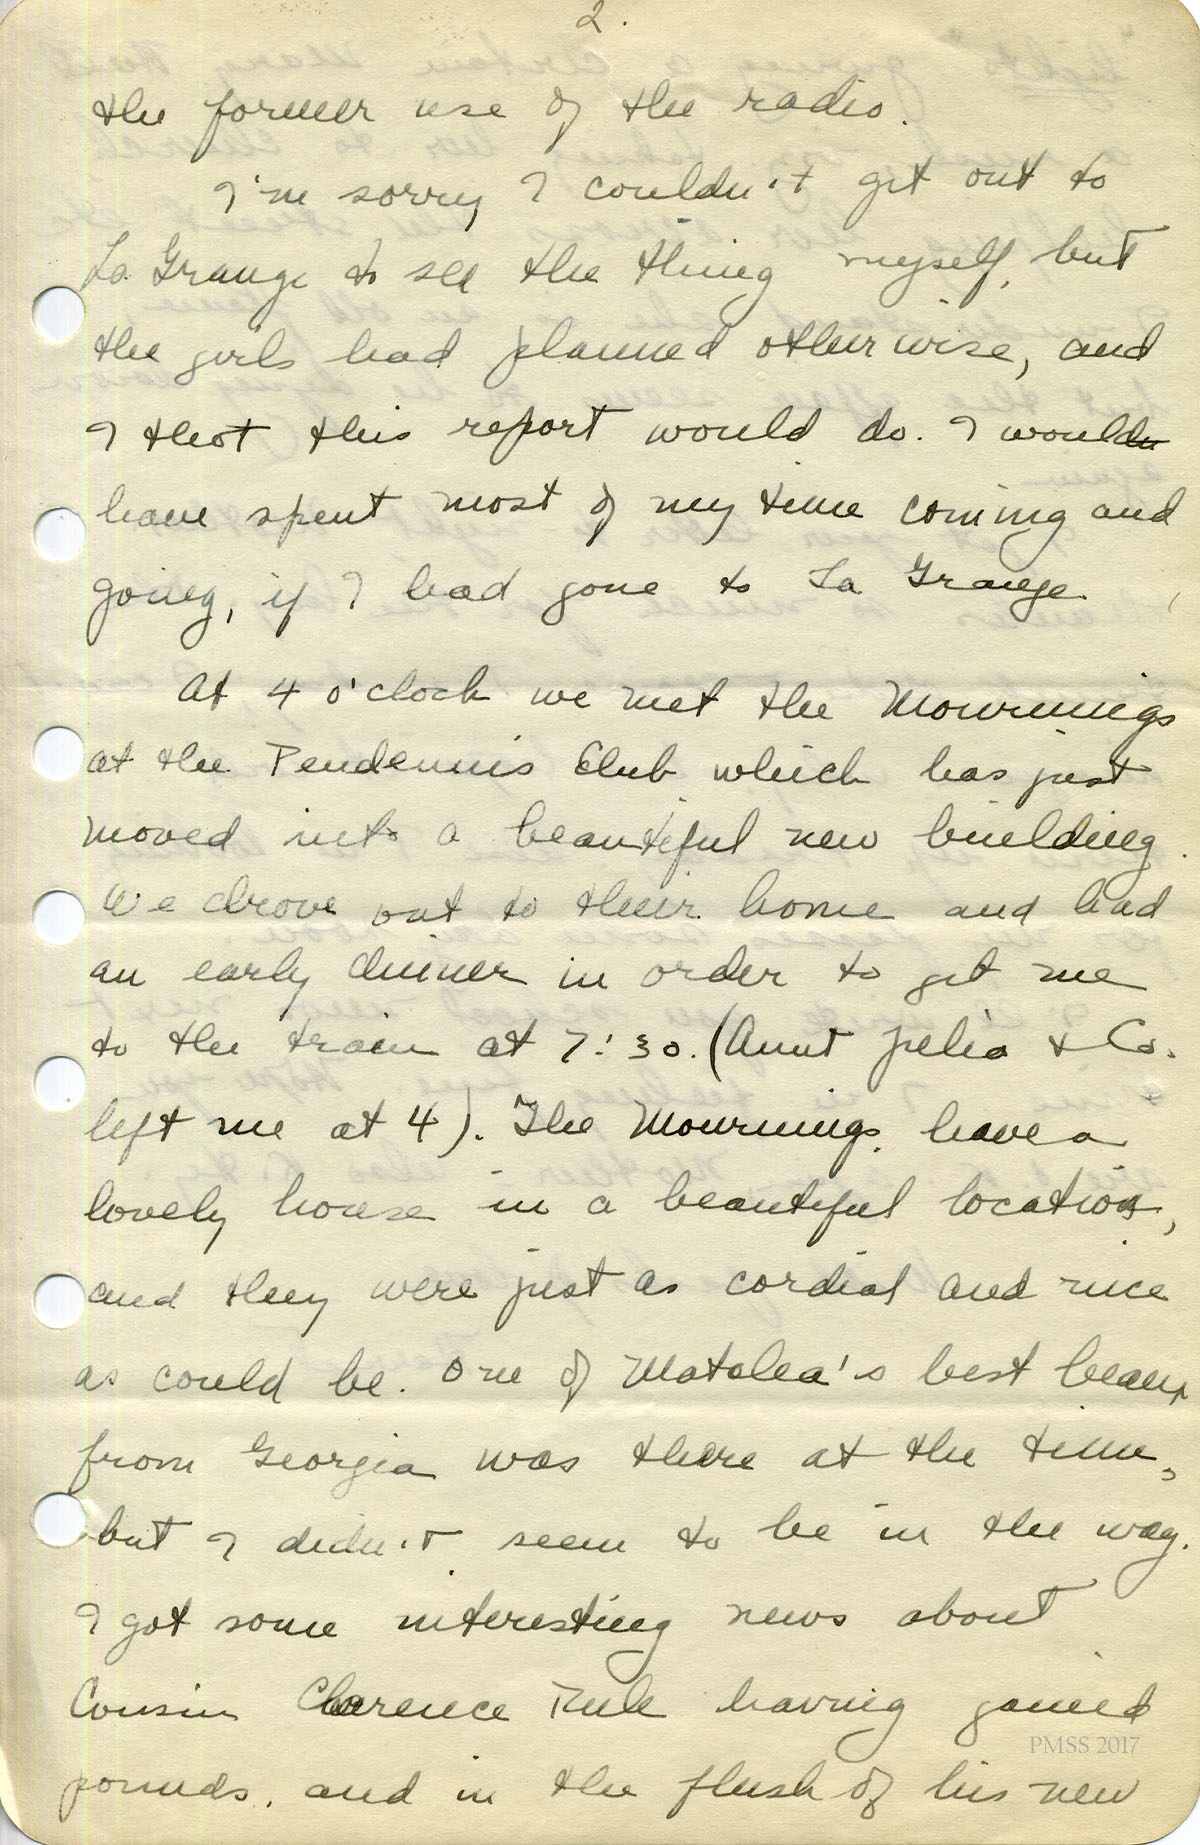 2.
the former use of the radio.
I'm sorry I couldn't get out to
La Grange to see the thing myself, but
the girls had planned otherwise, and
I thot this report would do. I would
have spent most of my time coming and
going, if I had gone to La Grange.
At 4 o'clock we met the Mournings
at the Pendennis Club which has just
moved into a beautiful new building.
We drove out to their home and had
an early dinner in order to get me
to the train at 7:30. (Aunt Julia & Co.
left me at 4). The Mournings have a
lovely house in a beautiful location,
and they were just as cordial and nice
as could be. One of Matalea's best beaux
from Georgia was there at the time,
but I didn't seem to be in the way.
I got some interesting news about
Cousin Clarence Rule having gained
pounds, and in the flush of his new
PMSS 2017